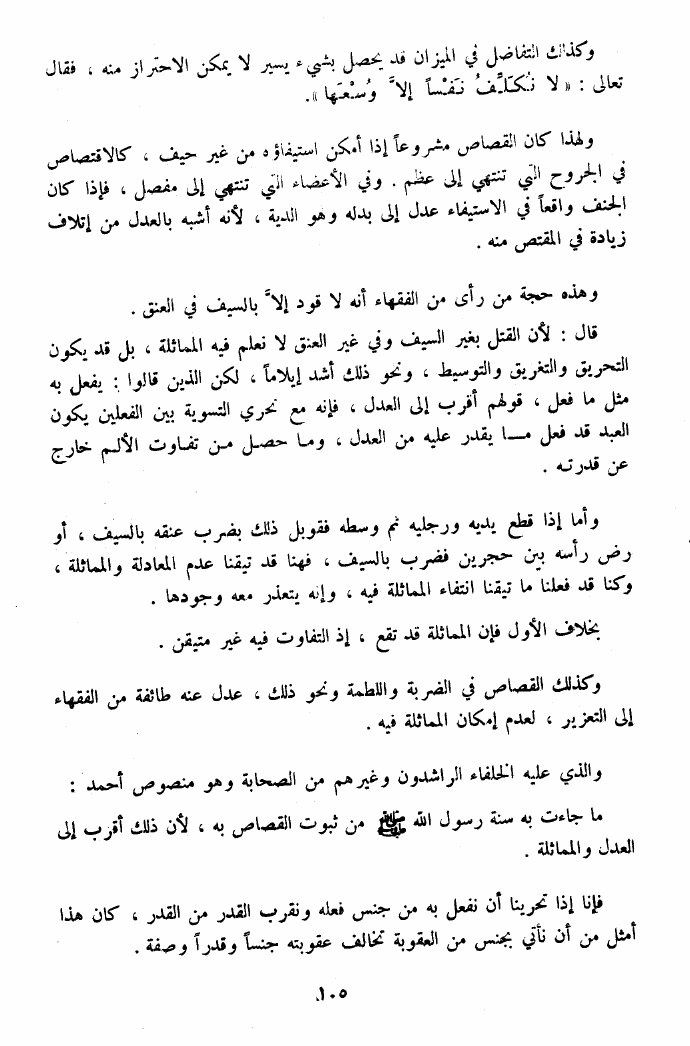 وكذلك التفاضل في الميزان قد يحصل بشيء يسير لا يمكن الاحتراز منه ، فقال
تعالى : « لا نُكَلِّفُ نَفْساً إلاَّ وُسْعَها » .
ولهذا كان القصاص مشروعاً إذا أمكن استيفاؤه من غير حيف ، كالاقتصاص
في الجروح التي تنتهي إلى عظم . وفي الأعضاء التي تنتهي إلى مفصل ، فإذا كان
الجنف واقعاً في الاستيفاء عدل إلى بدله وهو الدية ، لأنه أشبه بالعدل من إتلاف
زيادة في المقتص منه .
وهذه حجة من رأى من الفقهاء أنه لا قود إلاَّ بالسيف في العنق .
قال : لأن القتل بغير السيف وفي غير العنق لا نعلم فيه المماثلة ، بل قد يكون
التحريق والتغريق والتوسيط ، ونحو ذلك أشد إيلاماً ، لكن الذين قالوا : يفعل به
مثل ما فعل ، قولهم أقرب إلى العدل ، فإنه مع تحري التسوية بين الفعلين يكون
العبد قد فعل مــا يقدر عليه من العدل ، ومـا حصـل مـن تفـاوت الألـم خارج
عن قدرتـه .
وأما إذا قطع يديه ورجليه ثم وسطه فقوبل ذلك بضرب عنقه بالسيف ، أو
رض رأسه بين حجرين فضرب بالسيف ، فهنا قد تيقنا عدم المعادلة والمماثلة ،
وكنا قد فعلنا ما تيقنا انتفاء المماثلة فيه ، وإنه يتعذر معه وجودها .
بخلاف الأول فإن المماثلة قد تقع ، إذ التفاوت فيه غير متيقن .
وكذلك القصاص في الضربة واللطمة ونحو ذلك ، عدل عنه طائفة من الفقهاء
إلى التعزير ، لعدم إمكان المماثلة فيه .
والذي عليه الخلفاء الراشدون وغيرهم من الصحابة وهو منصوص أحمد :
ما جاءت به سنة رسول الله ﷺ من ثبوت القصاص به ، لأن ذلك أقرب إلى
العدل والمماثلة .
فإنا إذا تحرينا أن نفعل به من جنس فعله ونقرب القدر من القدر ، كان هذا
أمثل من أن نأتي بجنس من العقوبة تخالف عقوبته جنساً وقدراً وصفة .
١٠٥